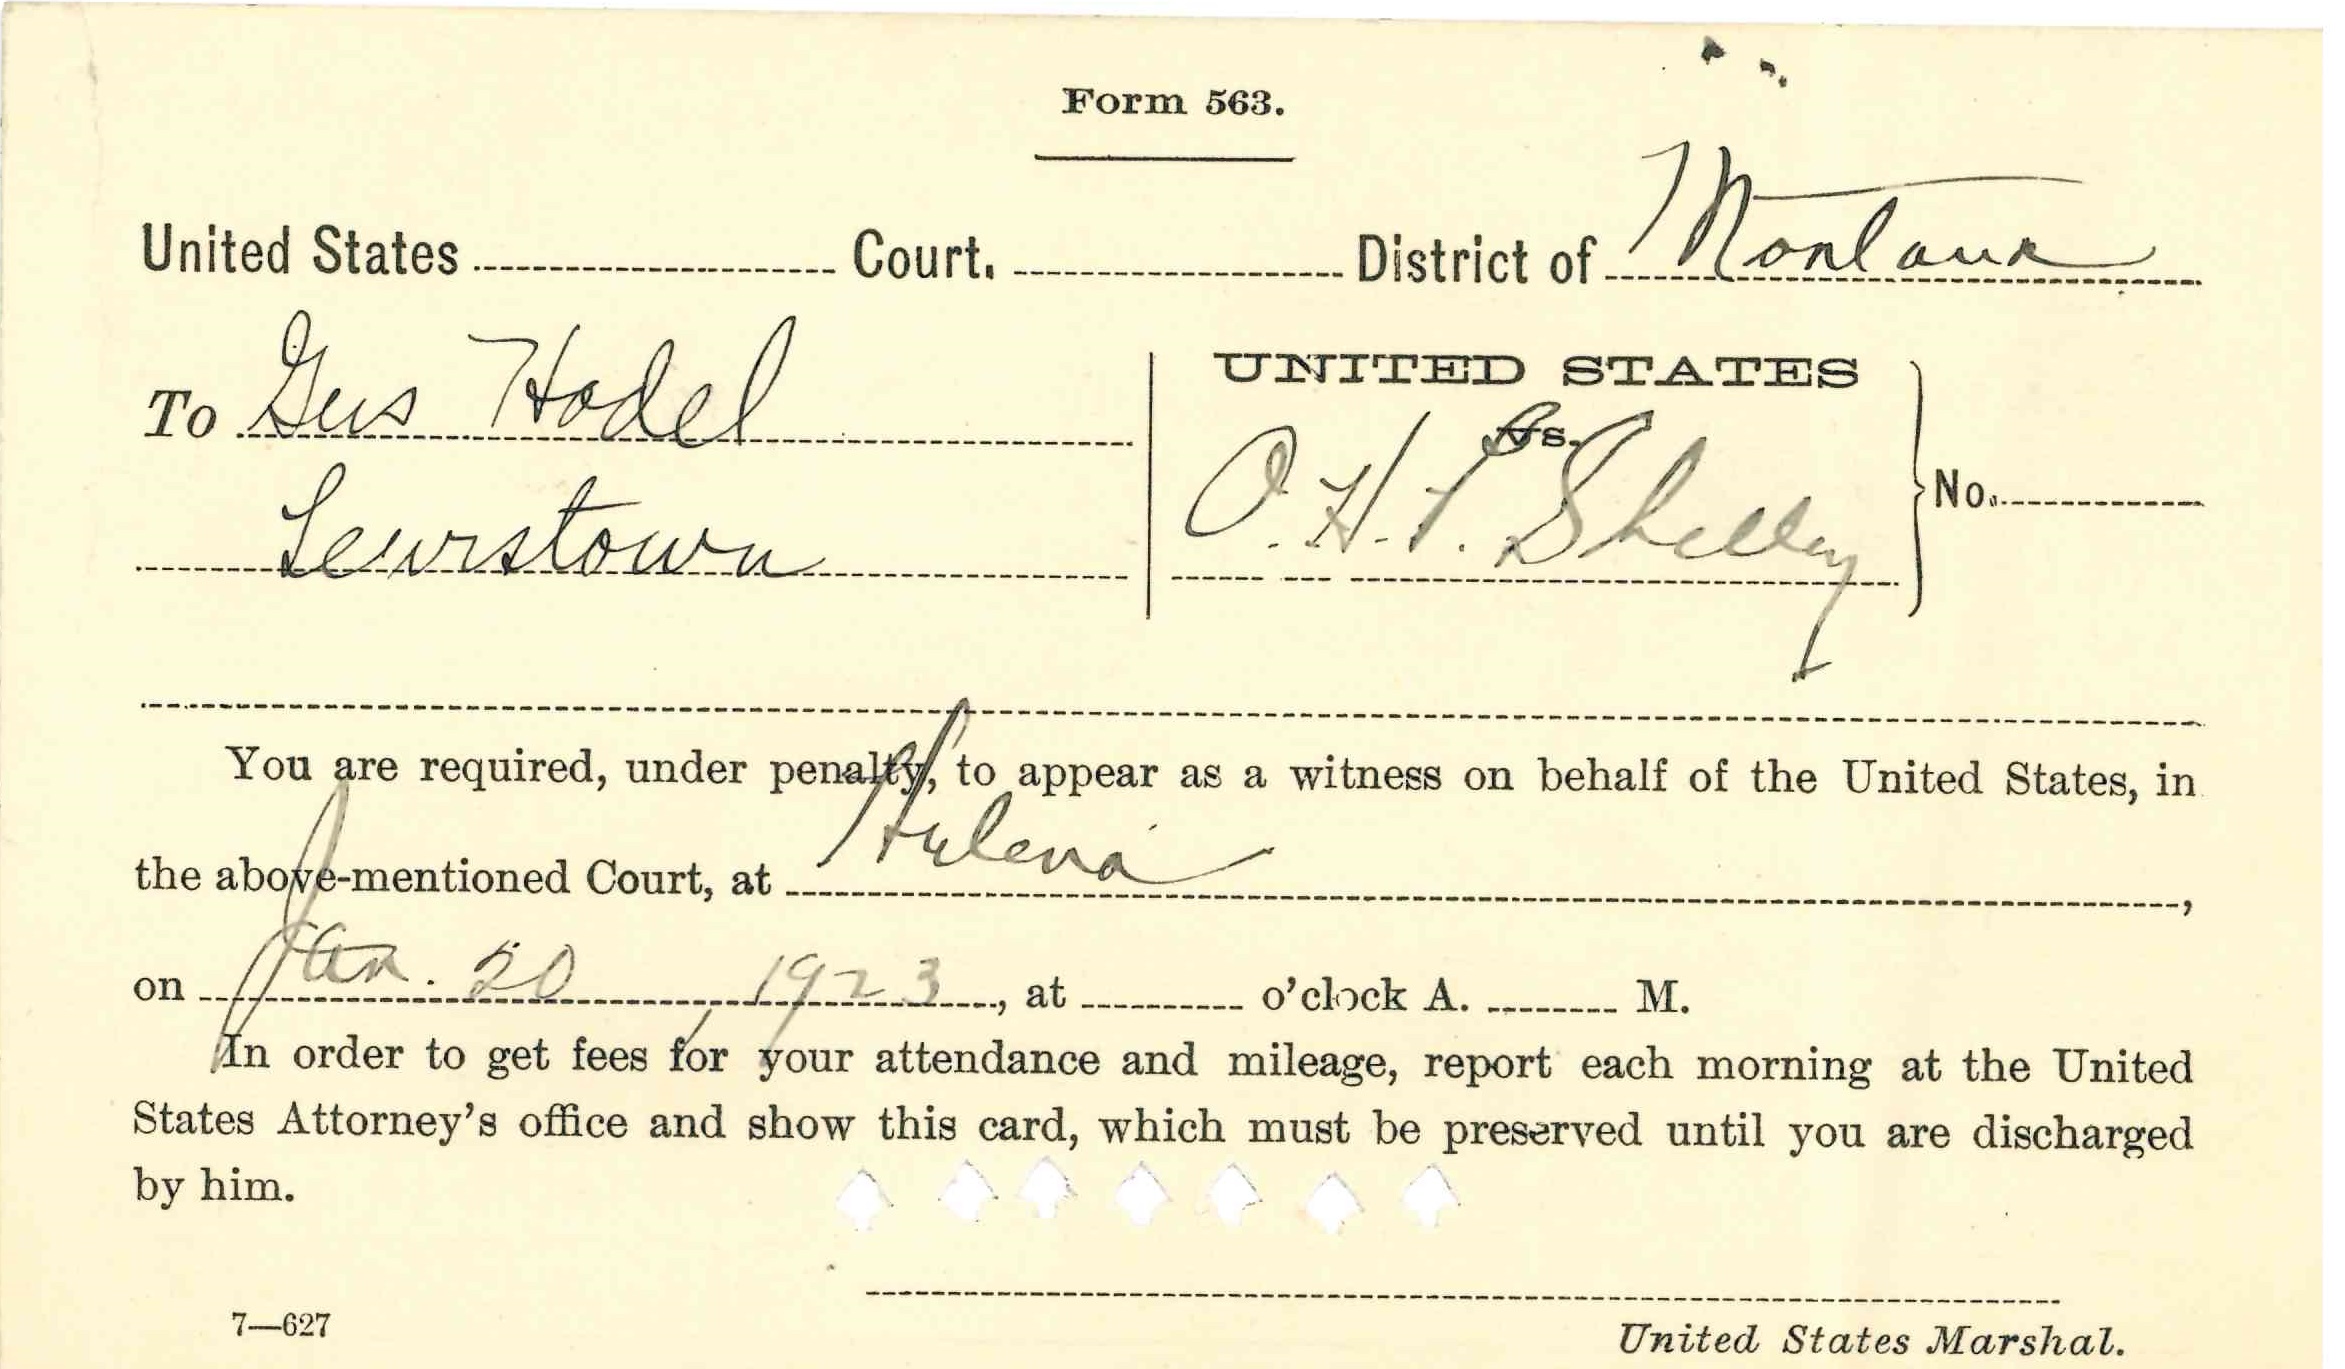 Form 563.
United States Court. District of Montana
To Gus Hodel
Lewistown
UNITED STATES
vs.
O. H. P. Shelley
No.
You are required, under penalty, to appear as a witness on behalf of the United States, in
the above-mentioned Court, at Helena,
on Jan. 20, 1923, at o'clock A. M.
In order to get fees for your attendance and mileage, report each morning at the United
States Attorney's office and show this card, which must be preserved until you are discharged
by him.
7—627
United States Marshal.